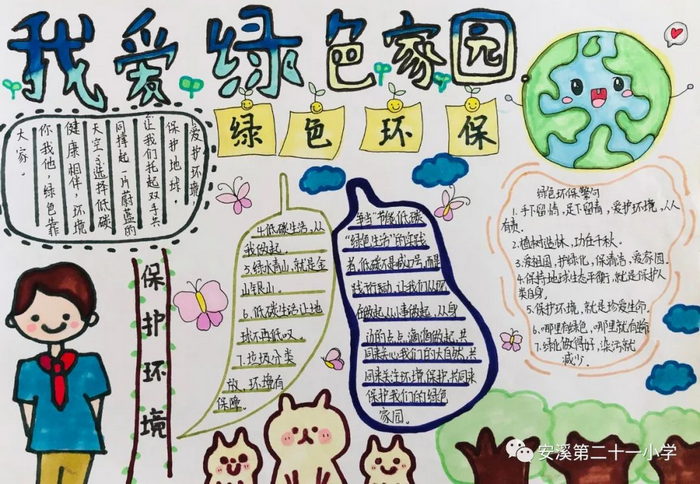 我爱绿色家园
绿色环保
爱护环境，
保护地球，
让我们托起双手共
同撑起一片蔚蓝的
天空，选择低碳
健康相伴，环境
你我他，绿色靠
大家。
保护环境
4.低碳生活，从
我做起。
5.绿水青山，就是金
山银山。
6.低碳生活让地
球不再低叹。
7.垃圾分类
放，环境有
保障。
争当"节能低碳
"绿色生活"的实践
者，低碳不是喊口号，而是
行动，让我们从现
在做起，从小事做起，从身
边的点点滴滴做起，共
同来关心我们的大自然，共
同来关注环境保护，共同来
保护我们的绿色
家园。
绿色环保警句
1.手下留情，足下留青，爱护环境，人人
有责。
2.植树造林，功在千秋。
3.爱祖国，护绿化，保清洁，爱家园。
4.保持地球生态平衡，就是保护人
类自身。
5.保护环境，就是珍爱生命。
6.哪里有绿色，哪里就有
7.绿化做得好，污染就
减少。
安溪第二十一小学